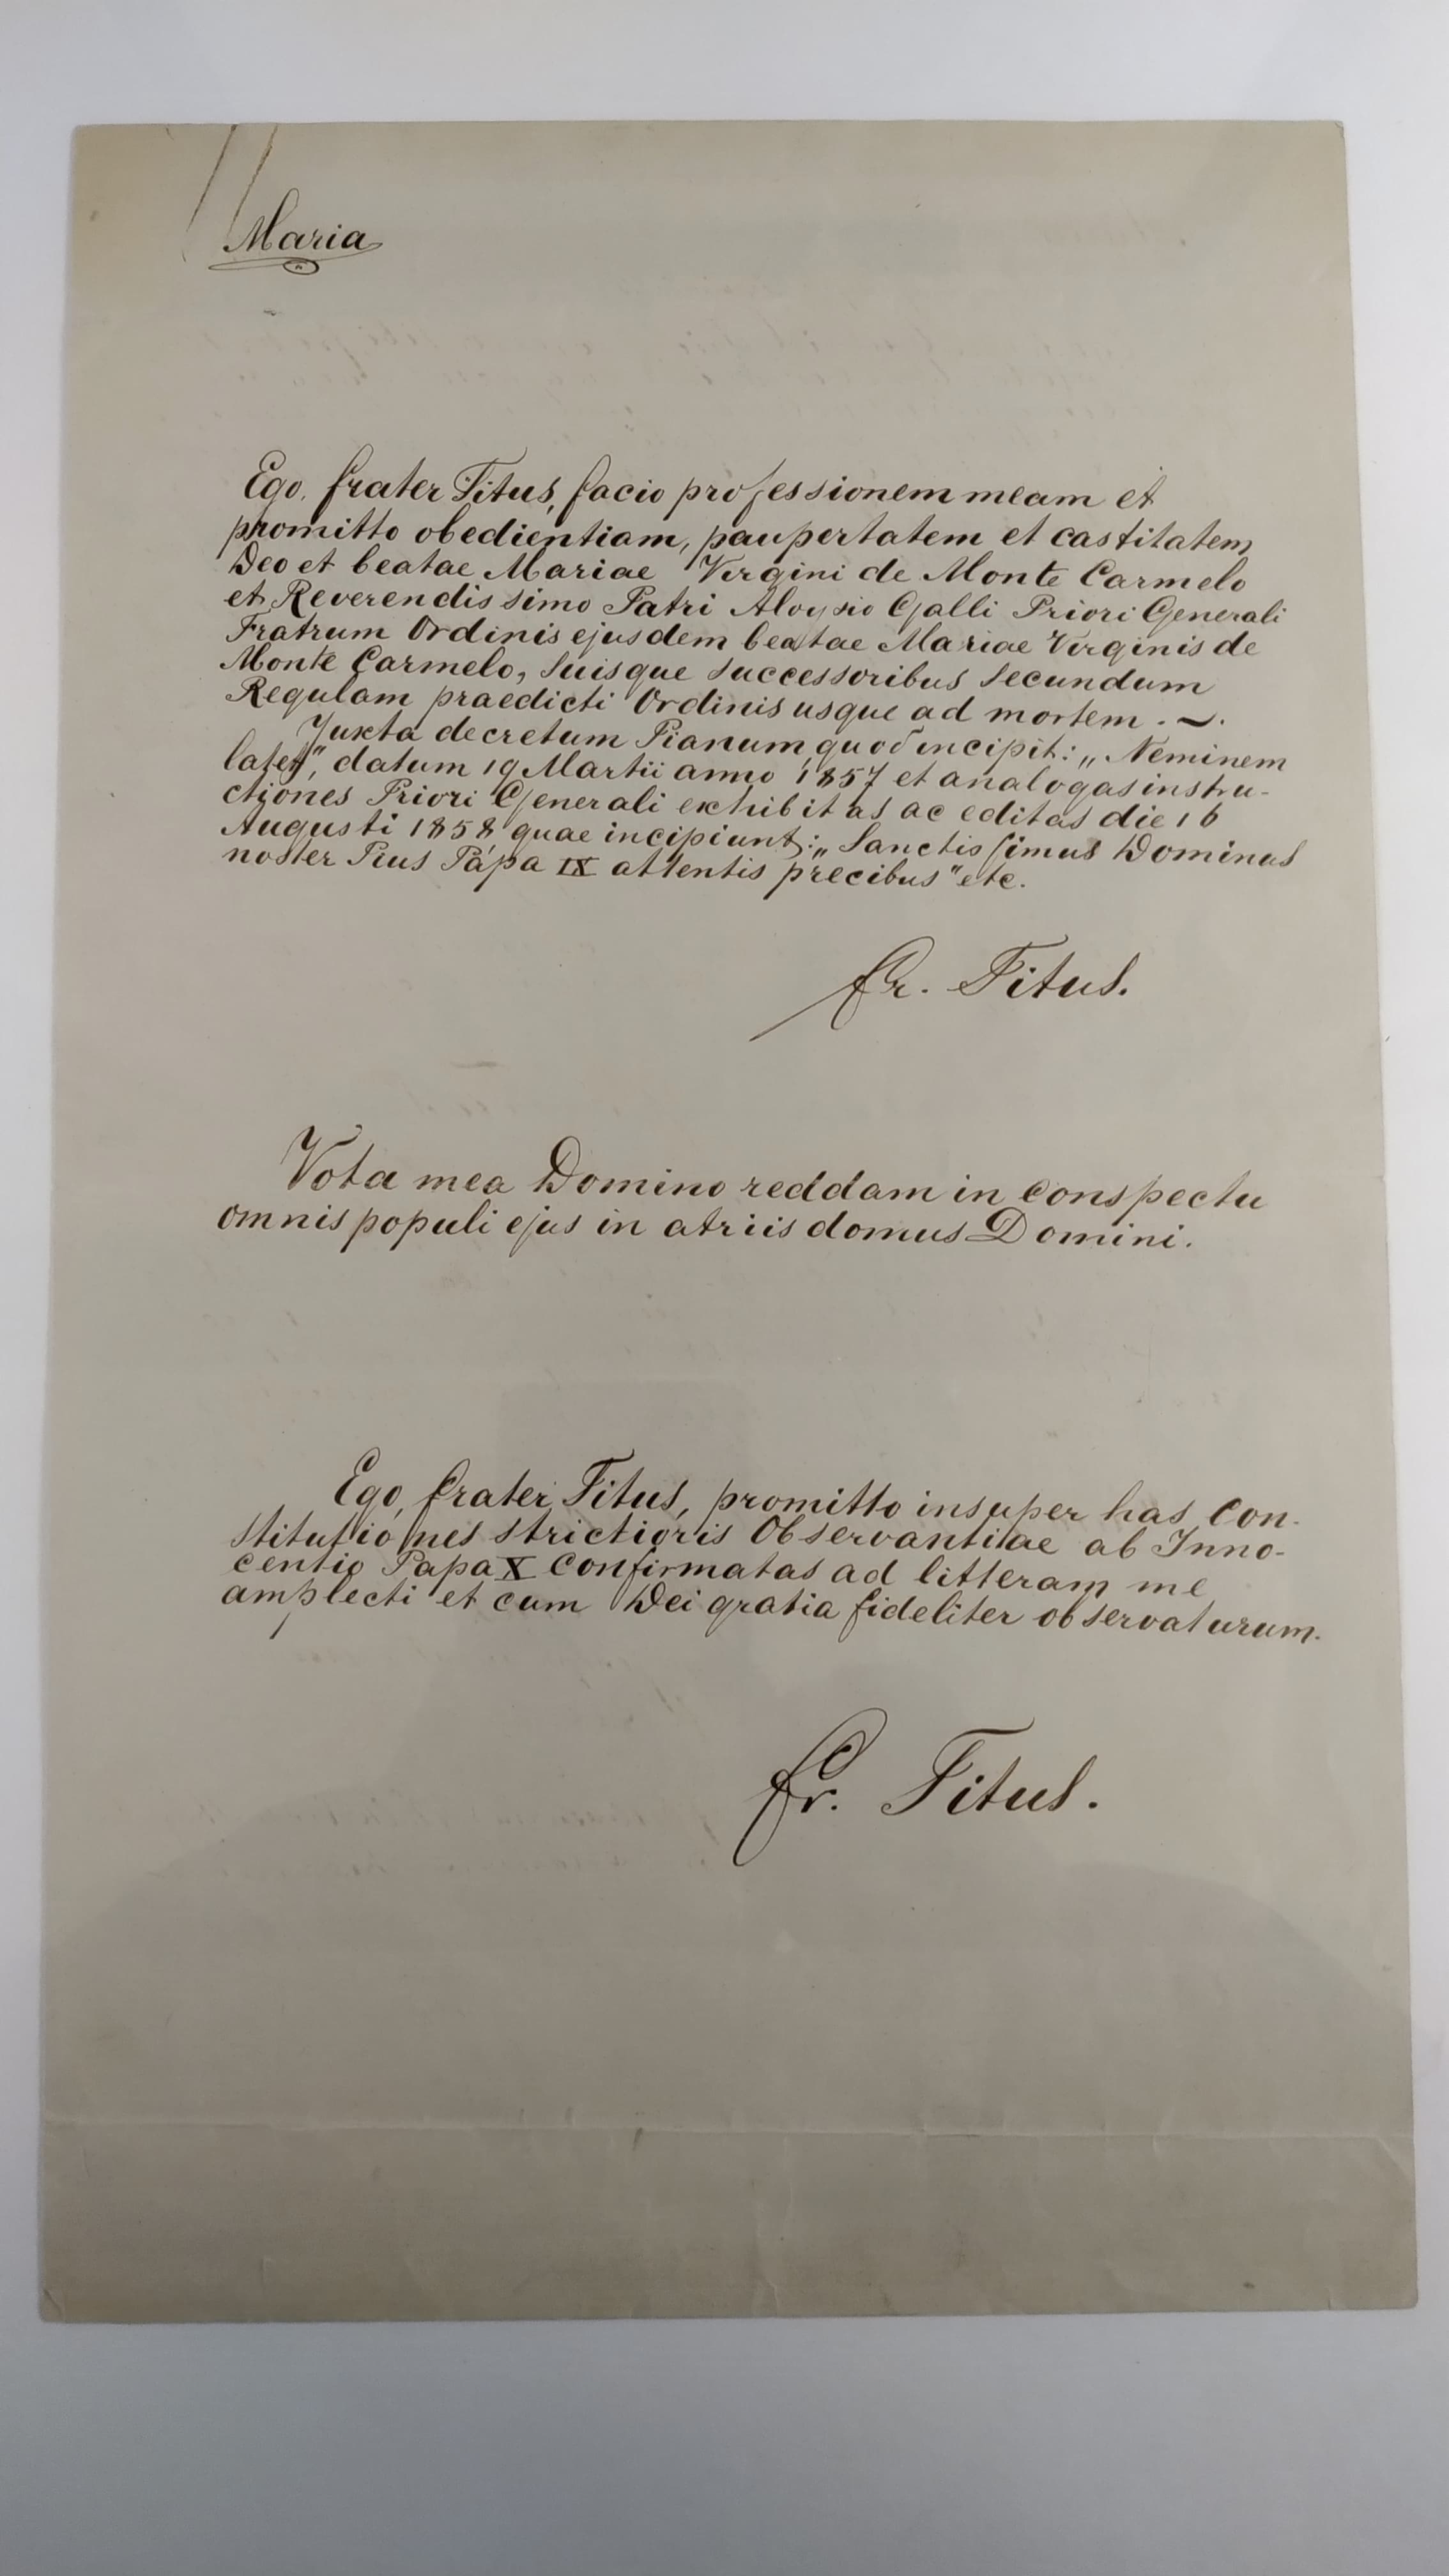 Maria
Ego, frater Titus, facio professionem meam et
promitto obedientiam, paupertatem et castitatem
Deo et beatae Mariae Virgini de Monte Carmelo
et Reverendissimo Patri Aloysio Galli Priori Generali
Fratrum Ordinis ejusdem beatae Mariae Virginis de
Monte Carmelo, suisque successoribus secundum
Regulam praedicti Ordinis usque ad mortem. ~.
Juxta decretum Pianum, quod incipit: „Neminem
latet", datum 19 Martii anno 1857 et analogas instru-
ctiones Priori Generali exhibitas ac editas die 16
Augusti 1858, quae incipiunt: „Sanctissimus Dominus
noster Pius Papa IX attentis precibus" etc.
Fr. Titus.
Vota mea Domino reddam in conspectu
omnis populi ejus in atriis domus Domini.
Ego, frater Titus, promitto insuper has con-
stitutiones strictioris Observantiae ab Inno-
centio Papa X confirmatas ad litteram me
amplecti et cum Dei gratia fideliter observaturum.
Fr. Titus.